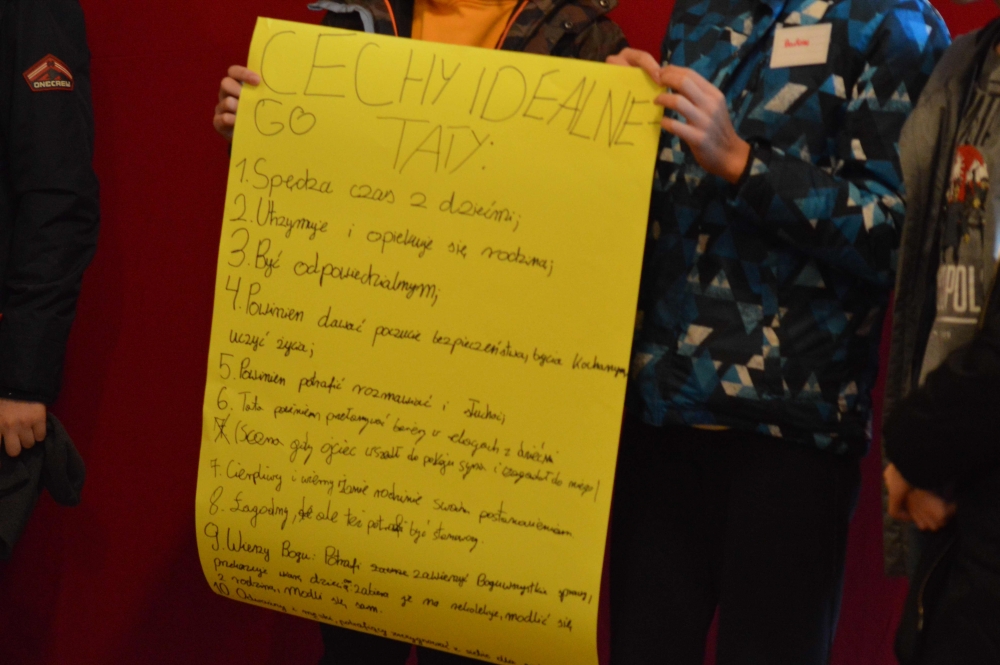 ONECREW
CECHY IDEALNE-
GO
TATY:
1. Spędza czas z dziećmi;
2. Utrzymuje i opiekuje się rodziną;
3. Być odpowiedzialnym;
4. Powinien dawać poczucie bezpieczeństwa, bycia kochanym,
uczyć życia;
5. Powinien potrafić rozmawiać i słuchać;
6. Tata powinien przełamywać bariery w relacjach z dziećmi
(Scena gdy ojciec wszedł do pokoju syna i zagadał do niego)
7. Cierpliwy i wierny żonie rodzinie swoim postanowieniom
8. Łagodny, ale też potrafi być stanowczy.
9. Wierzy Bogu: Potrafi zawierzyć Bogu wszystkie sprawy,
przekazuje wiarę dzieciom, zabiera je na rekolekcje, modlić się
z rodziną, modli się sam.
10) Odważny i męski,
POL